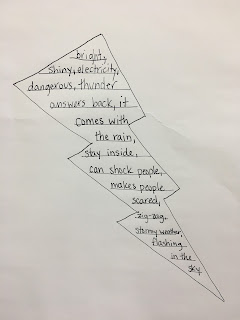 bright,
shiny, electricity,
dangerous, thunder
answers back, it
comes with
the rain,
stay inside,
can shock people,
makes people
scared,
zig-zag,
stormy weather,
flashing
in the
sky